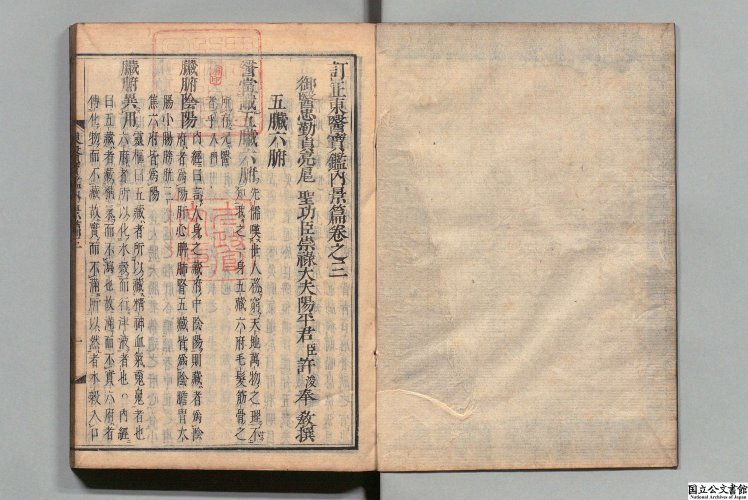 訂正東醫寶鑑內景篇卷之三
御醫忠勤貞亮扈 聖功臣崇祿大夫陽平君臣許浚奉 敎撰
五臟六腑
醫當識五臟六腑 先儒嘆世人務窮天地萬物之理不
知我之一身五臟六府毛髮筋骨之
所存況醫
者乎
臟腑陰陽 內經曰言人身之藏府中陰陽則藏者爲陰
府者爲陽肝心脾肺腎五藏皆爲陰膽胃大
腸小腸膀胱三
焦六府皆爲陽
臟腑異用 靈樞曰五藏者所以藏精神血氣魂魄者也
六府者所以化水穀而行津液者也○內經
曰五藏者藏精氣而不瀉也故滿而不實六府者
傳化物而不藏故實而不滿所以然者水穀入口
一
国立公文書館
National Archives of Japan